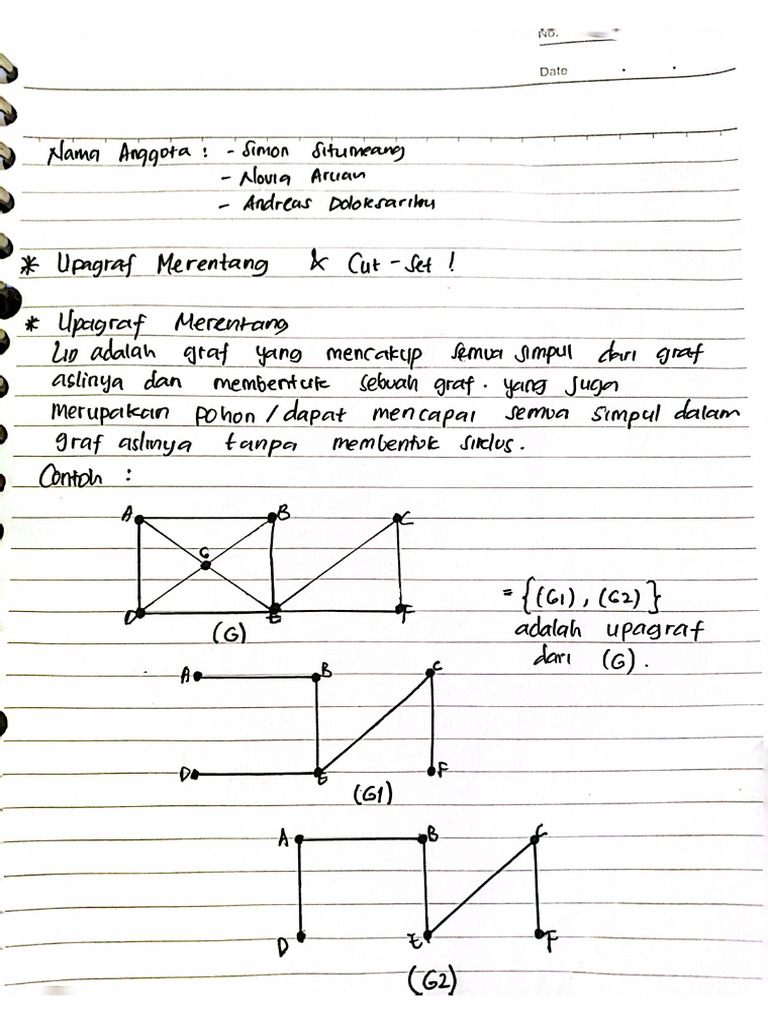 No.
Date
Nama Anggota : - Simon Situmeang
- Novia Aruan
- Andreas Doloksaribu
* Upagraf Merentang & Cut - Set !
* Upagraf Merentang
↳ adalah graf yang mencakup semua simpul dari graf
aslinya dan membentuk sebuah graf. yang juga
merupakan pohon / dapat mencapai semua simpul dalam
graf aslinya tanpa membentuk siklus.
Contoh :
A B C
G
D E F
(G)
= {(G1), (G2)}
adalah upagraf
dari (G).
A B C
D E F
(G1)
A B C
D E F
(G2)